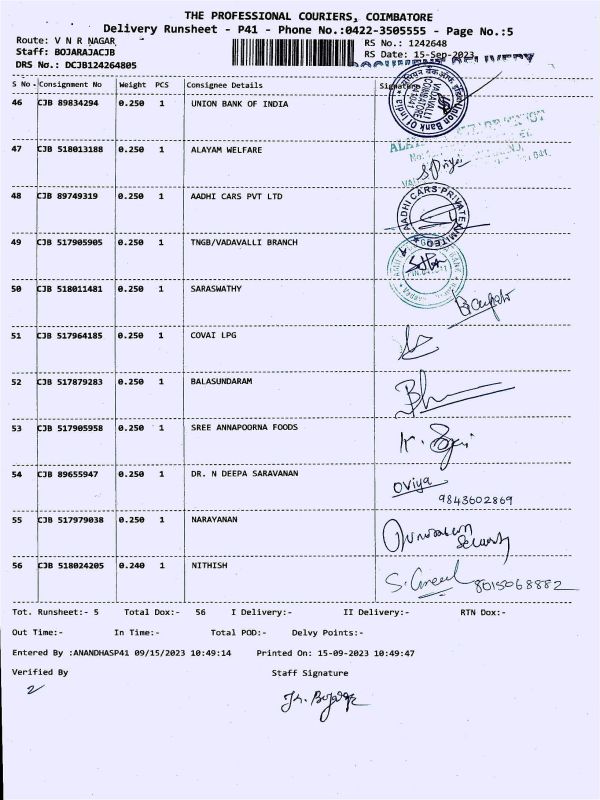 THE PROFESSIONAL COURIERS, COIMBATORE
Delivery Runsheet - P41 - Phone No.:0422-3505555 - Page No.:5
Route: V N R NAGAR
RS No.: 1242648
Staff: BOJARAJACJB
RS Date: 15-Sep-2023
DRS No.: DCJB124264805
S No Consignment No Weight PCS Consignee Details Signature
46 CJB 89834294 0.250 1 UNION BANK OF INDIA
47 CJB 518013188 0.250 1 ALAYAM WELFARE
48 CJB 89749319 0.250 1 AADHI CARS PVT LTD
AADHI CARS PRIVATE LIMITED
49 CJB 517905905 0.250 1 TNGB/VADAVALLI BRANCH
50 CJB 518011481 0.250 1 SARASWATHY
51 CJB 517964185 0.250 1 COVAI LPG
52 CJB 517879283 0.250 1 BALASUNDARAM
53 CJB 517905958 0.250 1 SREE ANNAPOORNA FOODS
54 CJB 89655947 0.250 1 DR. N DEEPA SARAVANAN
Oviya
9843602869
55 CJB 517979038 0.250 1 NARAYANAN
Security
56 CJB 518024205 0.240 1 NITHISH
8015068882
Tot. Runsheet:- 5 Total Dox:- 56 I Delivery:- II Delivery:- RTN Dox:-
Out Time:- In Time:- Total POD:- Delvy Points:-
Entered By :ANANDHASP41 09/15/2023 10:49:14 Printed On: 15-09-2023 10:49:47
Verified By Staff Signature